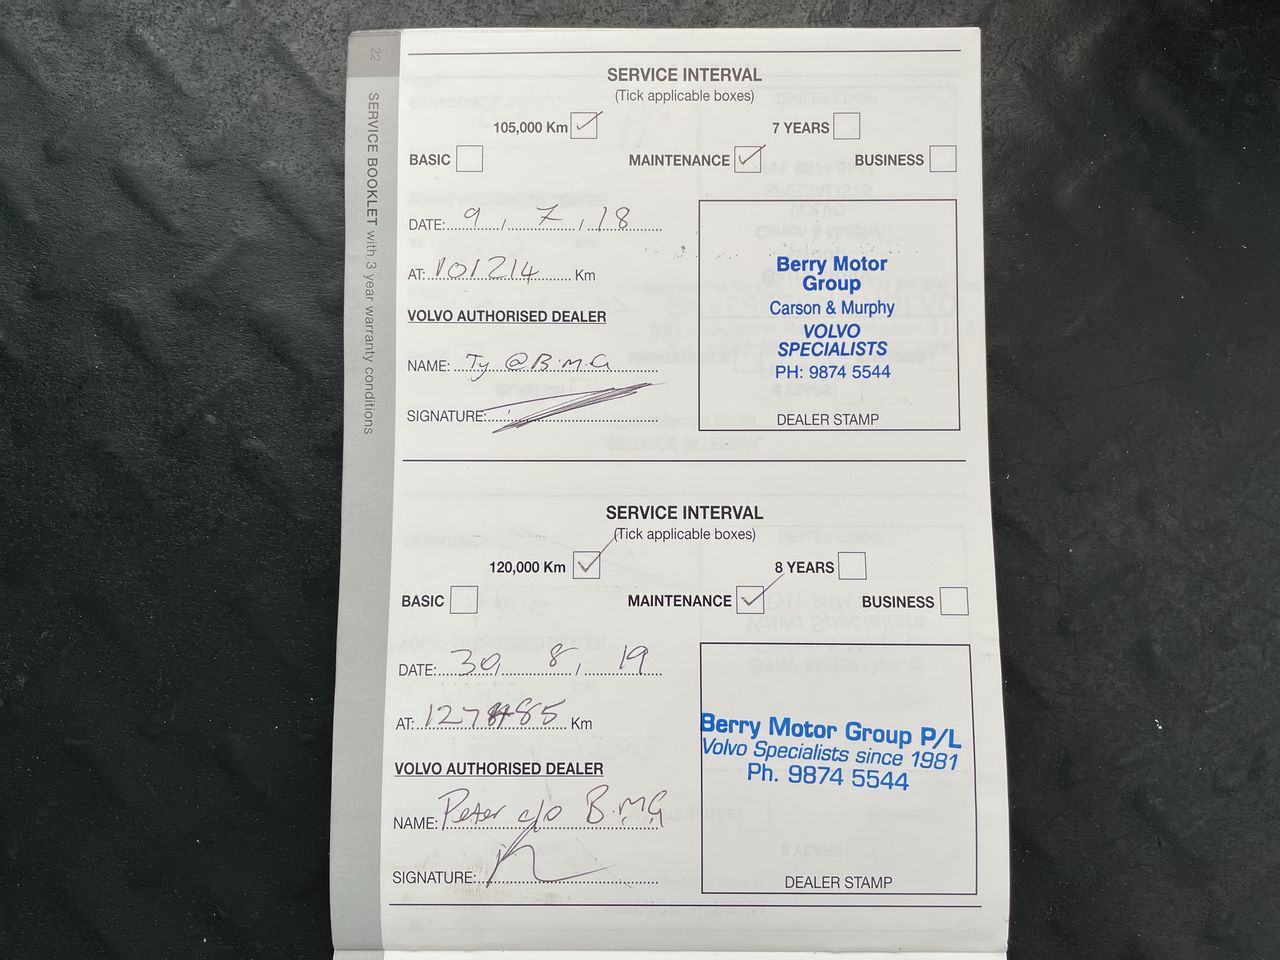 22
SERVICE BOOKLET with 3 year warranty conditions
SERVICE INTERVAL
(Tick applicable boxes)
105,000 Km 7 YEARS
BASIC MAINTENANCE BUSINESS
DATE: 9 / 7 / 18
AT: 101214 Km
VOLVO AUTHORISED DEALER
NAME: Ty @ B.M.G
SIGNATURE:
Berry Motor
Group
Carson & Murphy
VOLVO
SPECIALISTS
PH: 9874 5544
DEALER STAMP
SERVICE INTERVAL
(Tick applicable boxes)
120,000 Km 8 YEARS
BASIC MAINTENANCE BUSINESS
DATE: 30 / 8 / 19
AT: Km
VOLVO AUTHORISED DEALER
NAME: Peter c/o B.M.G
SIGNATURE:
Berry Motor Group P/L
Volvo Specialists since 1981
Ph. 9874 5544
DEALER STAMP